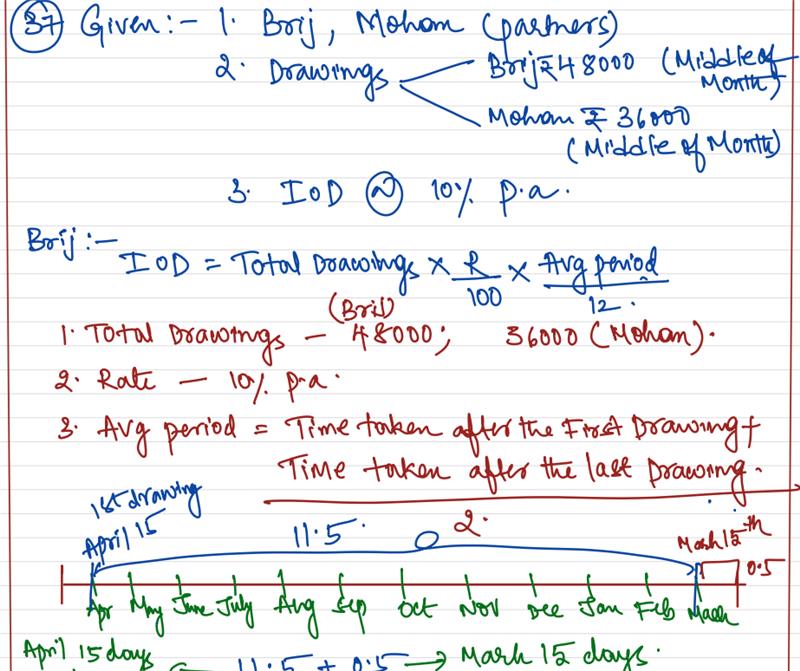 37 Given :- 1. Brij, Mohan (partners)
2. Drawings
Brij ₹48000 (Middle of Month)
Mohan ₹ 36000
(Middle of Month)
3. IOD @ 10% p.a.
Brij :-
IOD = Total Drawings × R/100 × Avg period/12.
(Brij)
1. Total Drawings — 48000; 36000 (Mohan).
2. Rate — 10% p.a.
3. Avg period = Time taken after the First Drawing +
Time taken after the last Drawing.
2.
1st drawing
April 15
11.5
March 15th
0.5
Apr May June July Aug Sep Oct Nov Dec Jan Feb March
April 15 days 11.5 + 0.5 → Marh 15 days.